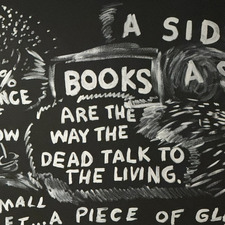 A SID
A S
%
NCE
OW
BOOKS
ARE THE
WAY THE
DEAD TALK TO
THE LIVING.
MALL
ET... A PIECE OF GL